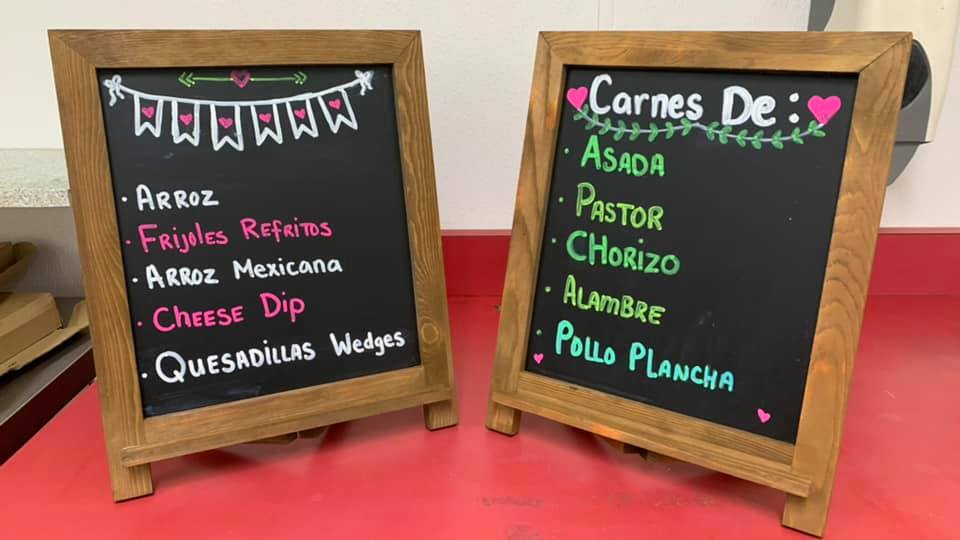 · Arroz
· Frijoles Refritos
· Arroz Mexicana
· Cheese Dip
· Quesadillas Wedges
Carnes De :
· Asada
· Pastor
· CHorizo
· Alambre
· Pollo Plancha